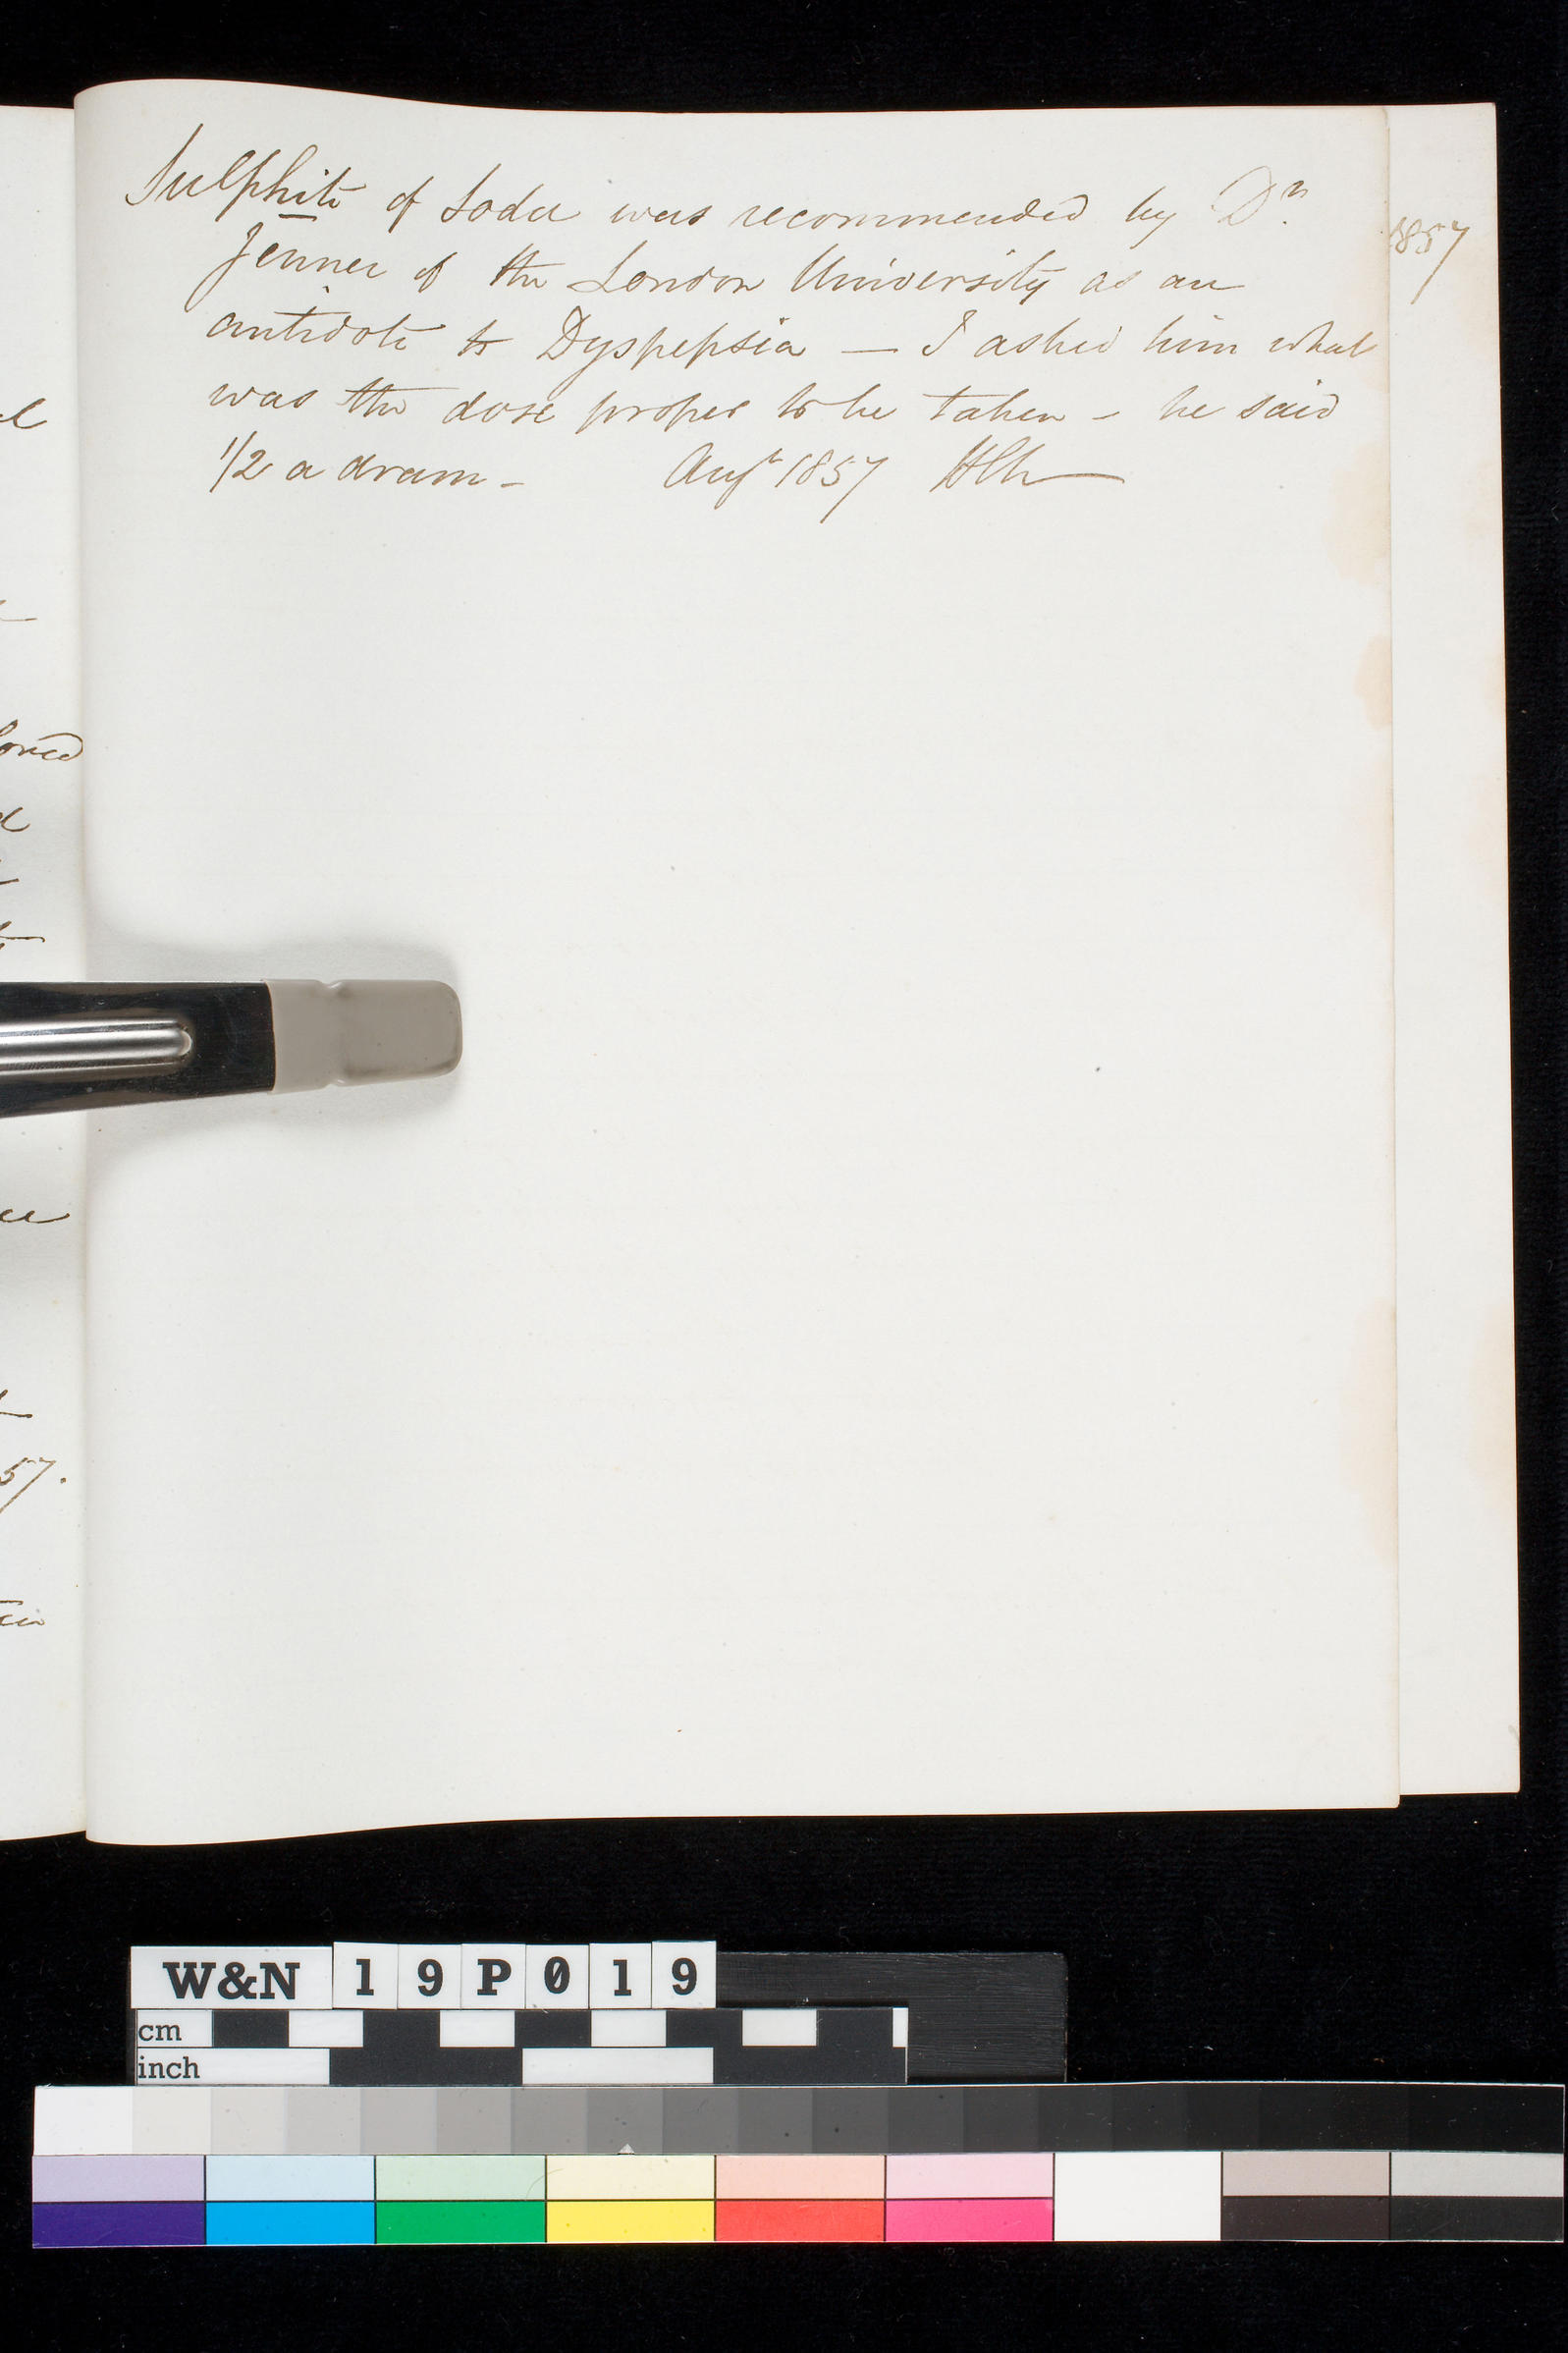 Sulphite of Soda was recommended by Dr.
Jenner of the London University as an
antidote to Dyspepsia — I asked him what
was the dose proper to be taken – he said
1/2 a dram – Augt 1857
1857
57.
W&N 19P019
cm
inch